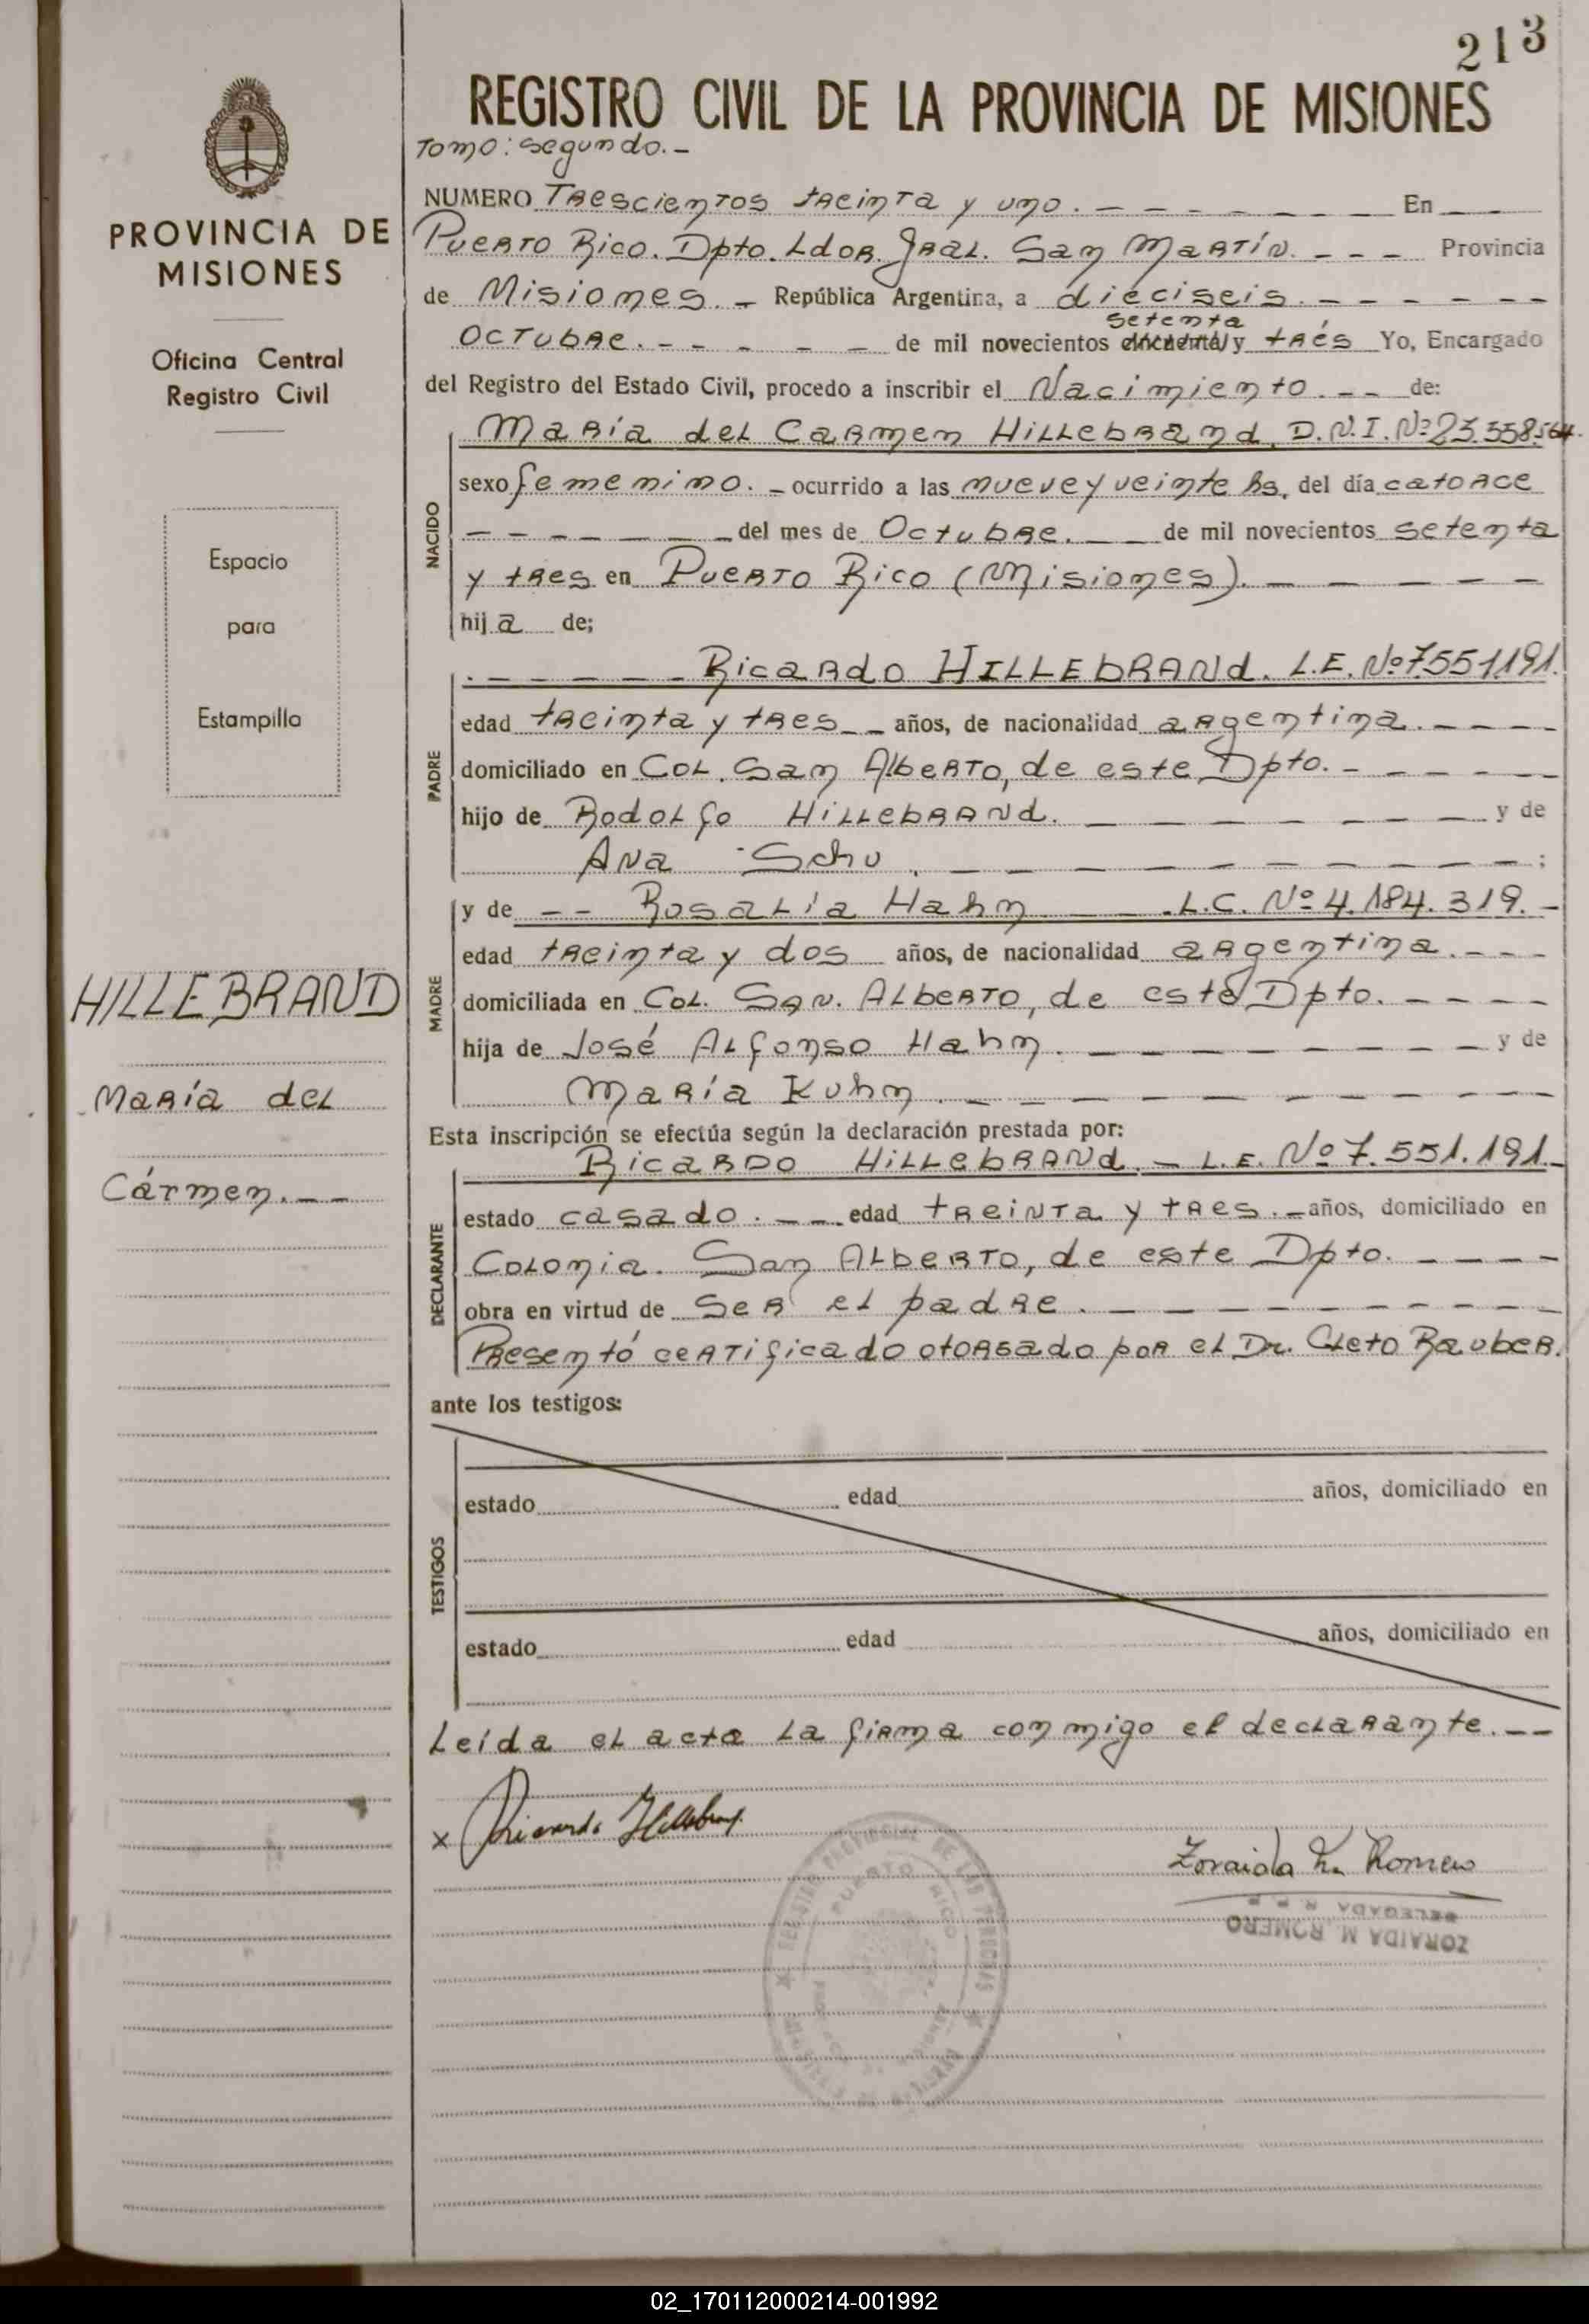 213
REGISTRO CIVIL DE LA PROVINCIA DE MISIONES
Tomo: segundo.-
PROVINCIA DE
MISIONES
Oficina Central
Registro Civil
Espacio
para
Estampilla
HILLEBRAND
María del
Cármen.--
NUMERO Trescientos treinta y uno. - - - - - - - En - -
Puerto Rico. Dpto. Ldor. Gral. San Martín. - - - Provincia
de Misiones. - República Argentina, a dieciseis. - - - - - -
setenta
octubre. - - - - - - de mil novecientos cincuenta y trés Yo, Encargado
del Registro del Estado Civil, procedo a inscribir el Nacimiento. -- de:
NACIDO
María del Carmen Hillebrand, D.N.I. Nº 23.558.564.
sexo femenino. - ocurrido a las nueve y veinte hs, del día catorce
- - - - - - - del mes de Octubre. - - de mil novecientos setenta
y tres en Puerto Rico (Misiones). - - - - - -
hija de;
PADRE
. - - - - - Ricardo HILLEBRANd. L.E. Nº 7.551.191.
edad treinta y tres - - años, de nacionalidad argentina. - - - -
domiciliado en Col. San Alberto, de este Dpto. - - - - - -
hijo de Rodolfo Hillebrand. - - - - - - - - y de
Ana Schu. - - - - - - - - ;
MADRE
y de -- Rosalía Hahn - - . L.C. Nº 4.184.319. -
edad treinta y dos años, de nacionalidad argentina. - - -
domiciliada en Col. San. Alberto, de este Dpto. - - - -
hija de José Alfonso Hahn. - - - - - - - - y de
María Kuhn. - - - - - - - - -
Esta inscripción se efectúa según la declaración prestada por:
DECLARANTE
Ricardo Hillebrand. - L.E. Nº 7.551.191.-
estado casado. - - - edad treinta y tres. - años, domiciliado en
Colonia. San Alberto, de este Dpto. - - - -
obra en virtud de ser el padre. - - - - - - - - -
Presentó certificado otorgado por el Dr. Cleto Rauber.
ante los testigos:
TESTIGOS
estado edad años, domiciliado en
estado edad años, domiciliado en
Leída el acta la firma conmigo el declarante. --
x Ricardo Hillebrand
Zoraida M. Romero
ZORAIDA M. ROMERO
DELEGADA
PUERTO RICO
02_170112000214-001992